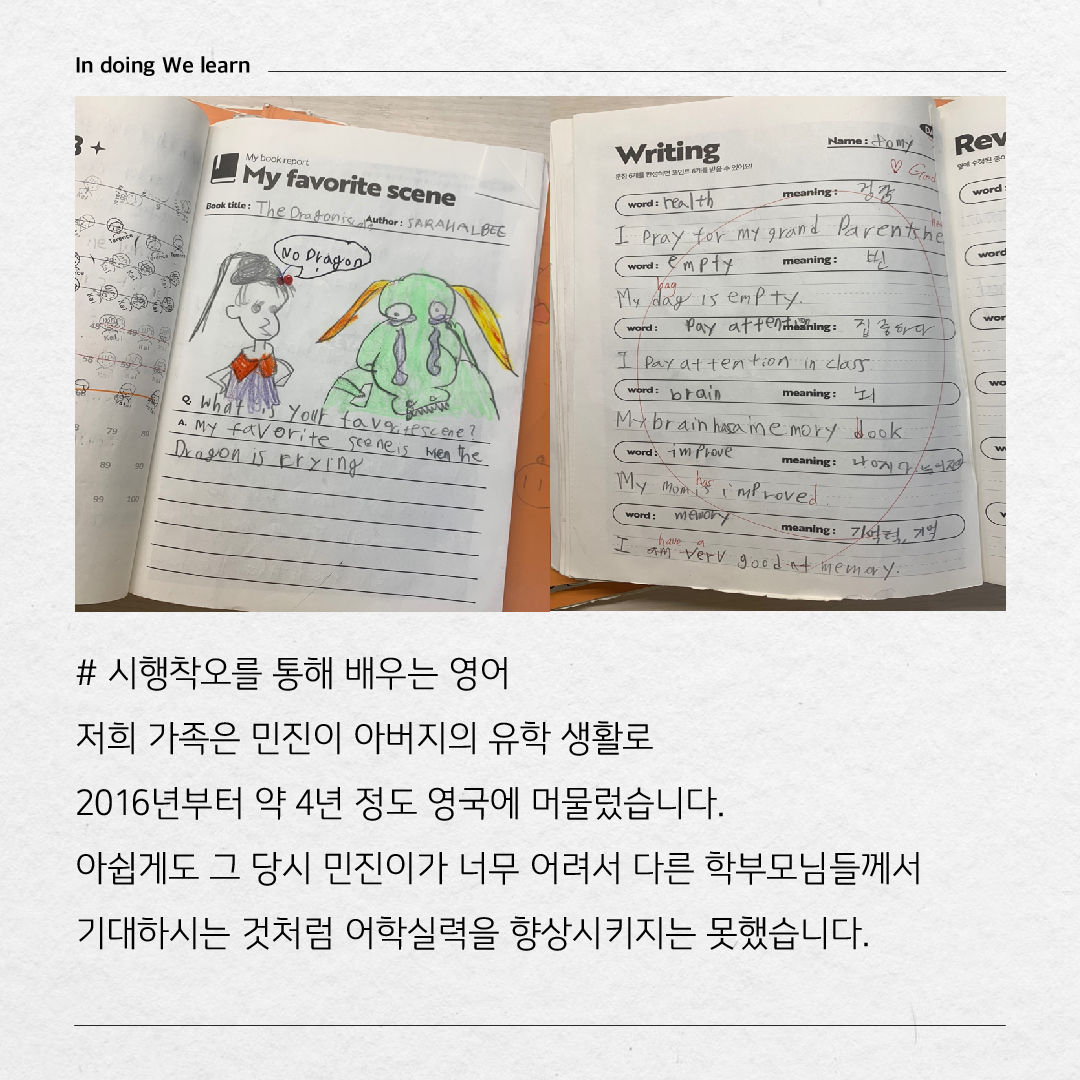 In doing We learn
My book report
My favorite scene
Book title : The Dragons Author : SARAH ALBEE
No Dragon!
Q. What is your favorite scene?
A. My favorite scene is when the
Dragon is crying
79 80
89 90
99 100
Writing
Name : tomy
Good
word : health meaning : 건강
I pray for my grand Parents he
word : empty meaning : 빈
bag
My dag is empty.
word : pay attention meaning : 집중하다
I Pay attention in class
word : brain meaning : 뇌
My brain has a memory dook
word : improve meaning : 나아지다
has
My mom is improved.
word : memory meaning : 기억력, 기억
have a
I am very good at memory.
Rev
word :
word
word
wor
wo
wo
w
# 시행착오를 통해 배우는 영어
저희 가족은 민진이 아버지의 유학 생활로
2016년부터 약 4년 정도 영국에 머물렀습니다.
아쉽게도 그 당시 민진이가 너무 어려서 다른 학부모님들께서
기대하시는 것처럼 어학실력을 향상시키지는 못했습니다.